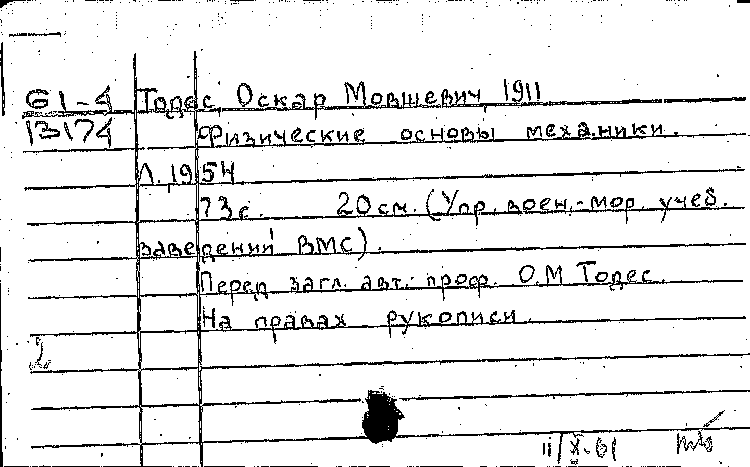 61-4 Тодес, Оскар Мовшевич, 1911
13174 Физические основы механики.
Л., 1954
73 с. 20 см. (Упр. воен.-мор. учеб.
заведений ВМС).
Перед загл. авт.: проф. О.М. Тодес.
На правах рукописи.
2
11/X-61